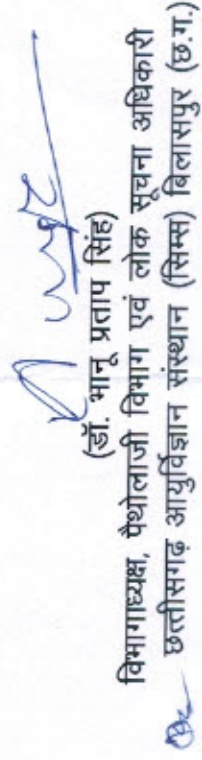 (डॉ. भानू प्रताप सिंह)
विभागाध्यक्ष, पैथोलाजी विभाग एवं लोक सूचना अधिकारी
छत्तीसगढ़ आयुर्विज्ञान संस्थान (सिम्स) बिलासपुर (छ.ग.)